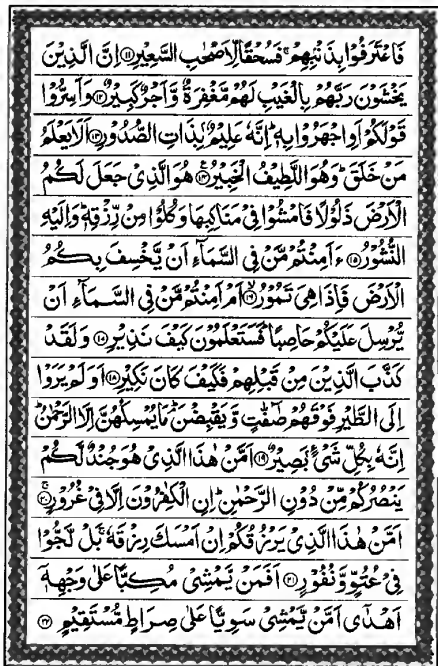 فَاعْتَرَفُوْا بِذَنْۢبِهِمْ ۚ فَسُحْقًا لِّاَصْحٰبِ السَّعِيْرِ ⑪ اِنَّ الَّذِيْنَ
يَخْشَوْنَ رَبَّهُمْ بِالْغَيْبِ لَهُمْ مَّغْفِرَةٌ وَّاَجْرٌ كَبِيْرٌ ⑫ وَاَسِرُّوْا
قَوْلَكُمْ اَوِ اجْهَرُوْا بِهٖ ؕ اِنَّهٗ عَلِيْمٌۢ بِذَاتِ الصُّدُوْرِ ⑬ اَلَا يَعْلَمُ
مَنْ خَلَقَ ؕ وَهُوَ اللَّطِيْفُ الْخَبِيْرُ ⑭ هُوَ الَّذِيْ جَعَلَ لَكُمُ
الْاَرْضَ ذَلُوْلًا فَامْشُوْا فِيْ مَنَاكِبِهَا وَكُلُوْا مِنْ رِّزْقِهٖ ؕ وَاِلَيْهِ
النُّشُوْرُ ⑮ ءَاَمِنْتُمْ مَّنْ فِي السَّمَآءِ اَنْ يَّخْسِفَ بِكُمُ
الْاَرْضَ فَاِذَا هِيَ تَمُوْرُ ⑯ اَمْ اَمِنْتُمْ مَّنْ فِي السَّمَآءِ اَنْ
يُّرْسِلَ عَلَيْكُمْ حَاصِبًا ؕ فَسَتَعْلَمُوْنَ كَيْفَ نَذِيْرِ ⑰ وَلَقَدْ
كَذَّبَ الَّذِيْنَ مِنْ قَبْلِهِمْ فَكَيْفَ كَانَ نَكِيْرِ ⑱ اَوَلَمْ يَرَوْا
اِلَى الطَّيْرِ فَوْقَهُمْ صٰٓفّٰتٍ وَّيَقْبِضْنَ ؔۘ مَا يُمْسِكُهُنَّ اِلَّا الرَّحْمٰنُ ؕ
اِنَّهٗ بِكُلِّ شَيْءٍۭ بَصِيْرٌ ⑲ اَمَّنْ هٰذَا الَّذِيْ هُوَ جُنْدٌ لَّكُمْ
يَنْصُرُكُمْ مِّنْ دُوْنِ الرَّحْمٰنِ ؕ اِنِ الْكٰفِرُوْنَ اِلَّا فِيْ غُرُوْرٍ ⑳
اَمَّنْ هٰذَا الَّذِيْ يَرْزُقُكُمْ اِنْ اَمْسَكَ رِزْقَهٗ ۚ بَلْ لَّجُّوْا
فِيْ عُتُوٍّ وَّنُفُوْرٍ ㉑ اَفَمَنْ يَّمْشِيْ مُكِبًّا عَلٰى وَجْهِهٖٓ
اَهْدٰٓى اَمَّنْ يَّمْشِيْ سَوِيًّا عَلٰى صِرَاطٍ مُّسْتَقِيْمٍ ㉒